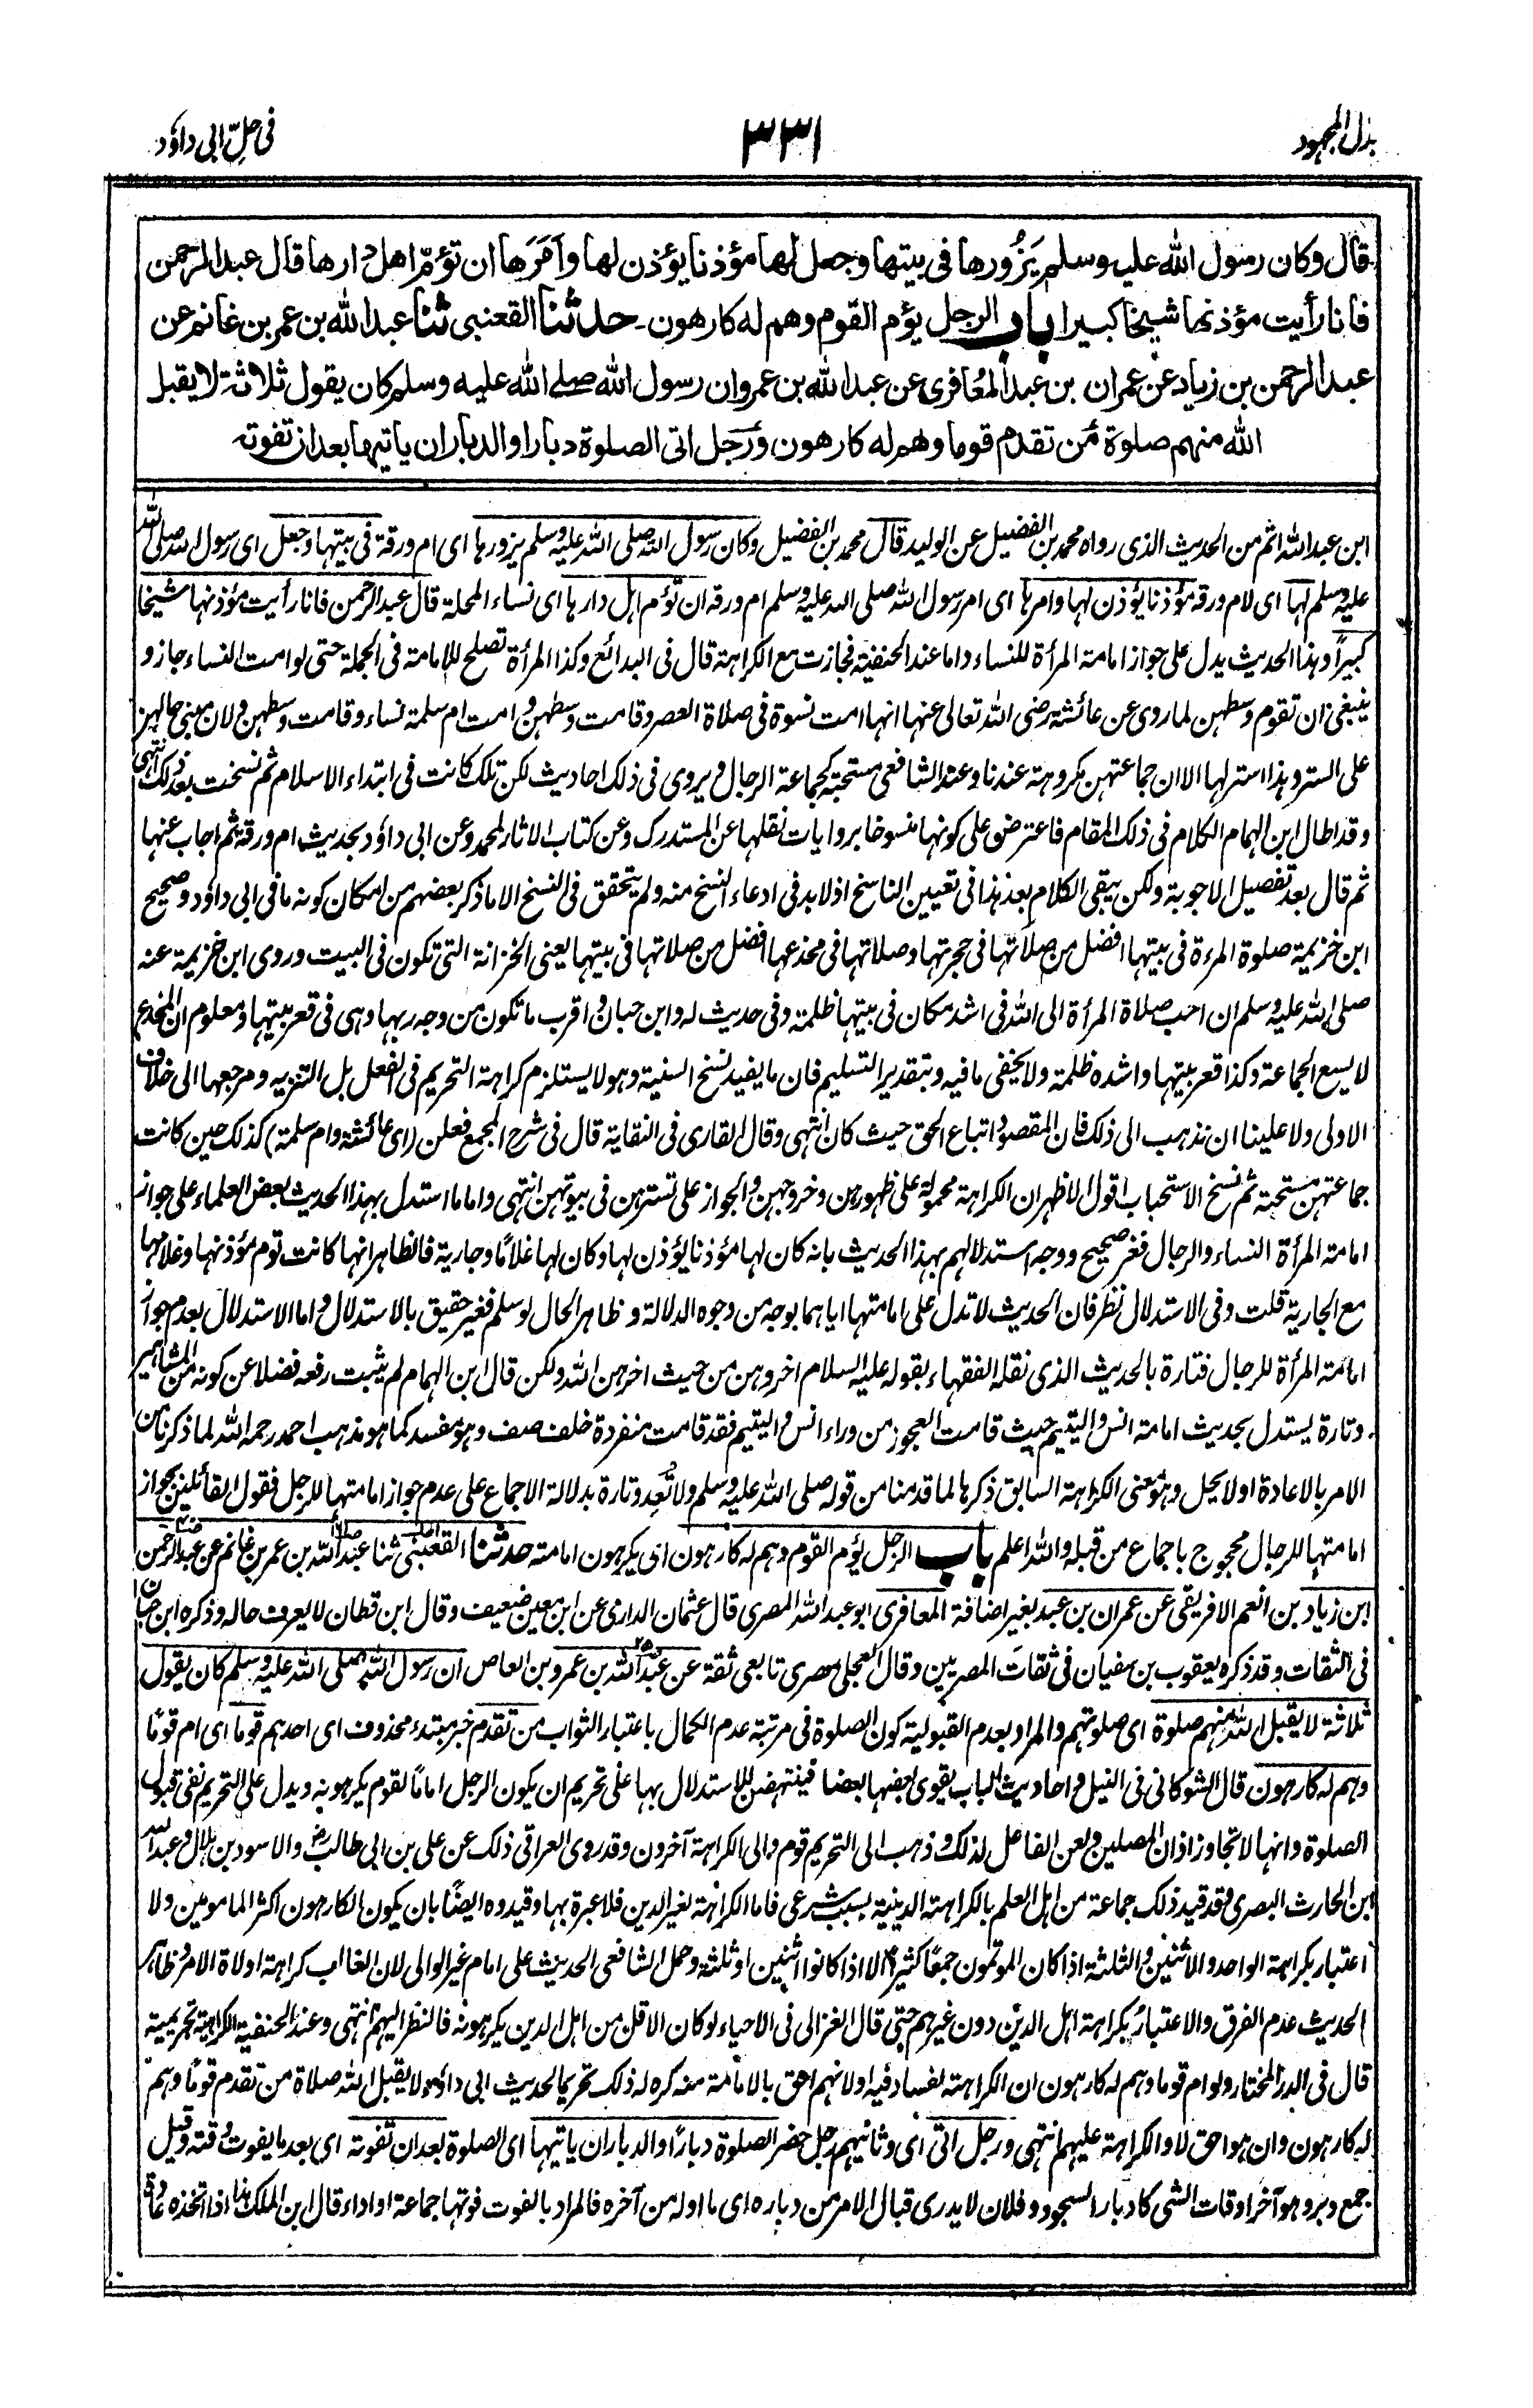 بذل المجهود
٣٣١
فى حلّ ابى داؤد
قال وكان رسول الله عليه وسلم يَزُورها فى بيتها وجعل لها مؤذنا يؤذن لها وأَمَرَها ان تؤمّ اهل دارها قال عبد الرحمن
فانا رأيت مؤذنها شيخا كبيرا باب الرجل يؤم القوم وهم له كارهون۔ حدثنا القعنبى ثنا عبد الله بن عمر بن غانم عن
عبد الرحمن بن زياد عن عمران بن عبد المعافرى عن عبد الله بن عمرو ان رسول الله صلے الله عليه وسلم كان يقول ثلاثة لا يقبل
الله منهم صلوة مَن تقدم قوما وهم له كارهون ورجل اتى الصلوة دبارا والدبار ان ياتيها بعد ان تفوته
ابن عبد الله اثم من الحديث الذى رواه محمد بن الفضيل عن الوليد قال محمد بن الفضيل وكان رسول الله صلى الله عليه وسلم يزورها اى ام ورقة فى بيتها وجعل اى رسول الله صلى الله
عليه وسلم لها اى لام ورقه مؤذنا يؤذن لها وامرها اى امر رسول الله صلى الله عليه وسلم ام ورقه ان تؤم اهل دارها اى نساء المحلة قال عبد الرحمن فانا رأيت مؤذنها شيخا
كبيراً وهذا الحديث يدل على جواز امامة المرأة للنساء واما عند الحنفية فجازت مع الكراهة قال فى البدائع وكذا المرأة تصلح للامامة فى الجملة حتى لو امت النساء جاز و
ينبغى ان تقوم وسطهن لما روى عن عائشة رضى الله تعالى عنها انها امت نسوة فى صلاة العصر وقامت وسطهن وامت ام سلمة نساء وقامت وسطهن ولان مبنى حالهن
على الستر وهذا استر لها الا ان جماعتهن مكروهة عندنا وعند الشافعى مستحبة كجماعة الرجال ويروى فى ذلك احاديث لكن تلك كانت فى ابتداء الاسلام ثم نسخت بعد ذلك انتهى
وقد اطال ابن الهمام الكلام فى ذلك المقام فاعترض على كونها منسوخا بروايات نقلها عن المستدرك وعن كتاب الاثار لمحمد وعن ابى داؤد بحديث ام ورقة ثم اجاب عنها
ثم قال بعد تفصيل الاجوبة ولكن يبقى الكلام بعد هذا فى تعيين الناسخ اذ لابد فى ادعاء النسخ منه ولم يتحقق فى النسخ الا ما ذكر بعضهم من امكان كونه ما فى ابى داؤد وصحيح
ابن خزيمة صلوة المرءة فى بيتها افضل من صلاتها فى حجرتها وصلاتها فى مخدعها افضل من صلاتها فى بيتها يعنى الخزانة التى تكون فى البيت وروى ابن خزيمة عنه
صلى الله عليه وسلم ان احب صلاة المرأة الى الله فى اشد مكان فى بيتها ظلمة وفى حديث له وابن حبان واقرب ما تكون من وجه ربها وهى فى قعر بيتها ومعلوم ان المخدع
لا يسع الجماعة وكذا قعر بيتها واشده ظلمة ولا يخفى ما فيه وبتقدير التسليم فان ما يفيد نسخ السنية وهو لا يستلزم كراهة التحريم فى الفعل بل التنزيه ومرجعها الى خلاف
الاولى ولا علينا ان نذهب الى ذلك فان المقصود اتباع الحق حيث كان انتهى وقال القارى فى النقاية قال فى شرح المجمع فعلن (اى عائشة وام سلمة) كذلك حين كانت
جماعتهن مستحبة ثم نسخ الاستحباب اقول الاظهر ان الكراهة محمولة على ظهورهن وخروجهن والجواز على تسترهن فى بيوتهن انتهى واما ما استدل بهذا الحديث بعض العلماء على جواز
امامة المرأة النساء والرجال فغير صحيح ووجه استدلالهم بهذا الحديث بانه كان لها مؤذنا يؤذن لها وكان لها غلامًا وجارية فالظاهر انها كانت توم مؤذنها وغلامها
مع الجارية قلت وفى الاستدلال نظر فان الحديث لا تدل على امامتها اياهما بوجه من وجوه الدلالة وظاهر الحال لو سلم فغير حقيق بالاستدلال واما الاستدلال بعدم جواز
امامة المرأة للرجال فتارة بالحديث الذى نقله الفقهاء بقوله عليه السلام اخروهن من حيث اخرهن الله ولكن قال ابن الهمام لم يثبت رفعه فضلا عن كونه من المشاهير
وتارة يستدل بحديث امامة انس واليتيم حيث قامت العجوز من وراء انس واليتيم فقد قامت منفردة خلف صف وهو مفسد كما هو مذهب احمد رحمه الله لما ذكرنا من
الامر بالاعادة اولا يحل وهو معنى الكراهة السابق ذكرها لما قدمنا من قوله صلى الله عليه وسلم ولا تَعُد وتارة بدلالة الاجماع على عدم جواز امامتها للرجل فقول القائلين بجواز
امامتها للرجال محجوج باجماع من قبله والله اعلم باب الرجل يؤم القوم وهم له كارهون اى يكرهون امامته حدثنا القعنبى ثنا عبد الله بن عمر بن غانم عن عبد الرحمن
ابن زياد بن انعم الافريقى عن عمران بن عبد بغير اضافة المعافرى ابو عبد الله المصرى قال عثمان الدارمى عن ابن معين ضعيف وقال ابن قطان لا يعرف حاله وذكره ابن حبان
فى الثقات وقد ذكره يعقوب بن سفيان فى ثقات المصريين وقال العجلى مصرى تابعى ثقة عن عبد الله بن عمرو بن العاص ان رسول الله صلى الله عليه وسلم كان يقول
ثلاثة لا يقبل الله منهم صلوة اى صلوتهم والمراد بعدم القبولية كون الصلوة فى مرتبة عدم الكمال باعتبار الثواب من تقدم خبر مبتدء محذوف اى احدهم قوما اى ام قومًا
وهم له كارهون قال الشوكانى فى النيل واحاديث الباب يقوى بعضها بعضا فينتهض للاستدلال بها على تحريم ان يكون الرجل امامًا لقوم يكرهونه ويدل على التحريم نفى قبول
الصلوة وانها لا تجاوز اذان المصلين ولعن الفاعل لذلك وذهب الى التحريم قوم والى الكراهة آخرون وقد روى العراقى ذلك عن على بن ابى طالب رض والاسود بن هلال وعبد الله
ابن الحارث البصرى وقد قيد ذلك جماعة من اهل العلم بالكراهة الدينية بسبب شرعى فاما الكراهة لغير الدين فلا عبرة بها وقيدوه ايضًا بان يكون الكارهون اكثر المامومين ولا
اعتبار بكراهة الواحد والاثنين والثلثة اذا كان الموتمون جمعًا كثيرًا الا اذا كانوا اثنين او ثلثة وحمل الشافعى الحديث على امام غير الوالى لان الغالب كراهة اولاة الامر وظاهر
الحديث عدم الفرق والاعتبار بكراهة اهل الدين دون غيرهم حتى قال الغزالى فى الاحياء لو كان الاقل من اهل الدين يكرهونه فالنظر اليهم انتهى وعند الحنفية الكراهة تحريمية
قال فى الدر المختار ولو ام قوما وهم له كارهون ان الكراهة لفساد فيه اولانهم احق بالامامة منه كره له ذلك تحريما لحديث ابى داؤد لا يقبل الله صلاة من تقدم قومًا وهم
له كارهون وان هو احق لا والكراهة عليهم انتهى ورجل اتى اى وثانيهم رجل حضر الصلوة دبارًا والدبار ان ياتيها اى الصلوة بعد ان تفوته اى بعد ما يفوت وقته وقيل
جمع دبر وهو آخر اوقات الشى كادبار السجود وفلان لا يدرى قبال الامر من دباره اى ما اوله من آخره فالمراد بالفوت فوتها جماعة او اداء قال ابن الملك هذا اذا اتخذه عادة